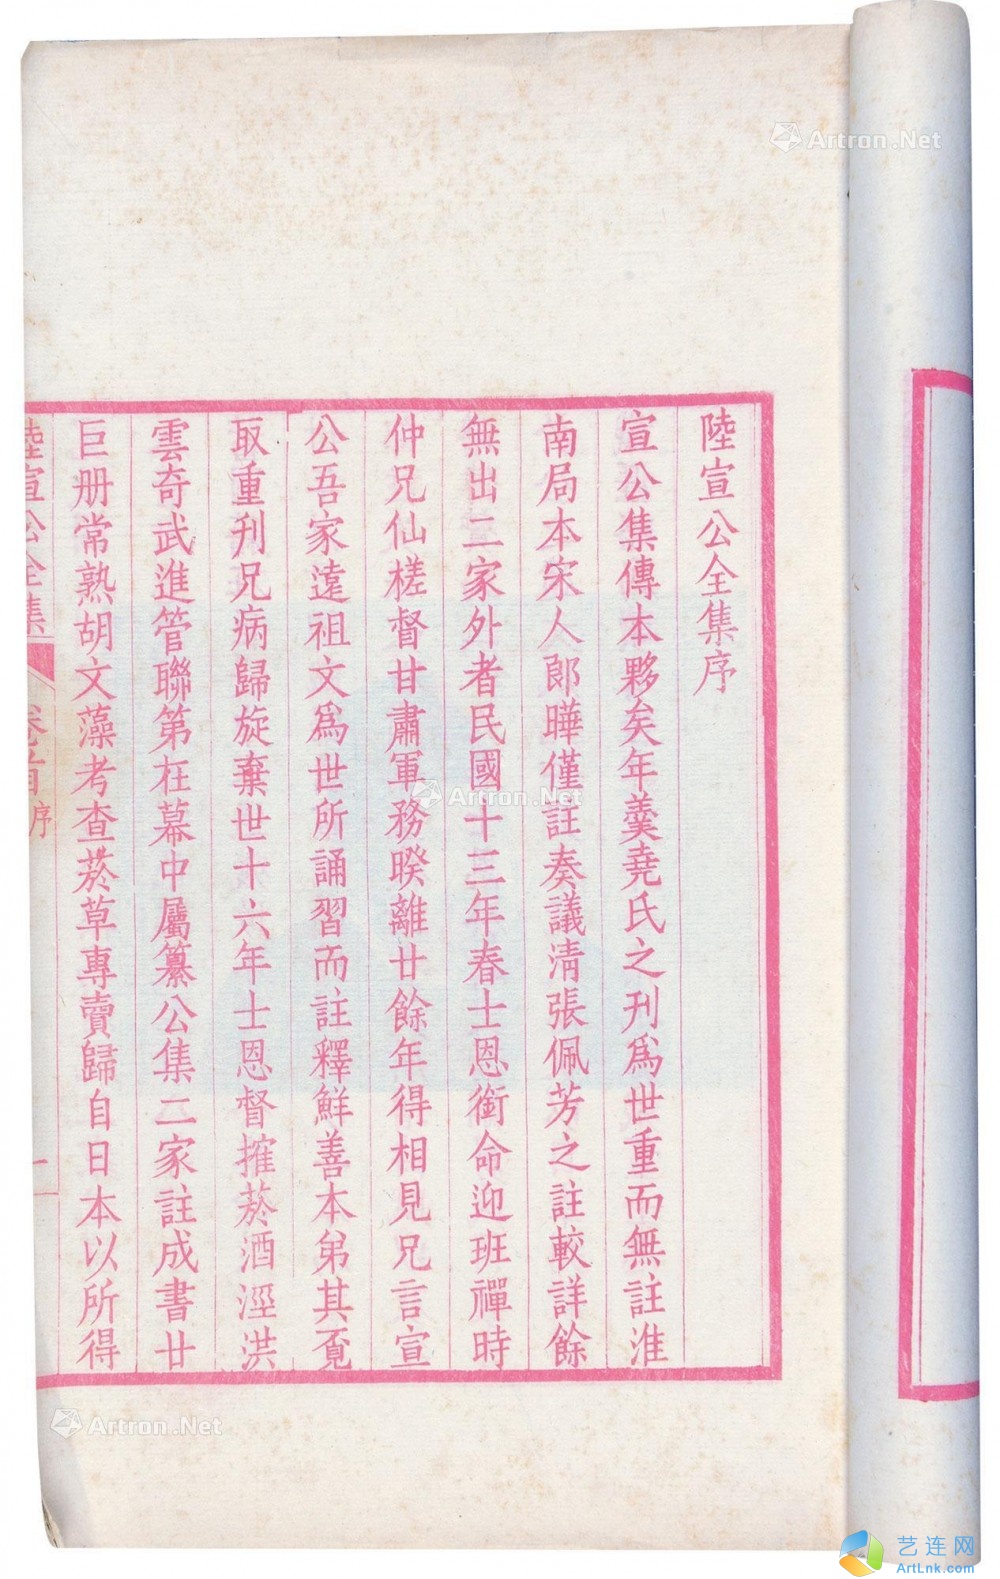 陸宣公全集序
宣公集傳本夥矣年羹堯氏之刊爲世重而無註淮
南局本宋人郎曄僅註奏議清張佩芳之註較詳餘
無出二家外者民國十三年春士恩銜命迎班禪時
仲兄仙槎督甘肅軍務暌離廿餘年得相見兄言宣
公吾家遠祖文爲世所誦習而註釋鮮善本弟其覔
取重刊兄病歸旋棄世十六年士恩督㩁菸酒涇洪
雲奇武進管聯第在幕中屬纂公集二家註成書廿
巨册常熟胡文藻考查菸草專賣歸自日本以所得
陸宣公全集 卷之首 序 一
Artron.Net
Artron.Net
Artron.Net
艺连网
ArtLnk.com